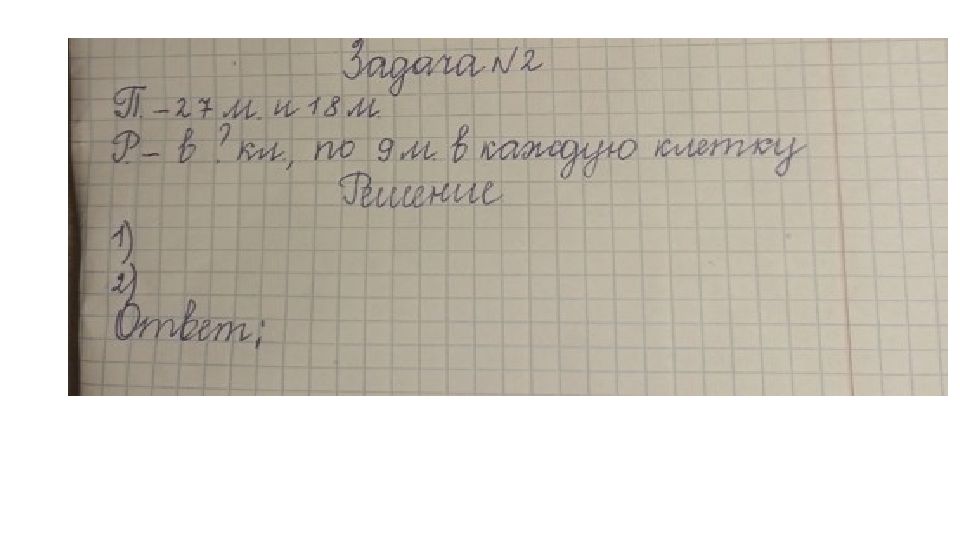 Задача N2
П. – 27 м. и 18 м.
Р. – в ? кл., по 9 м. в каждую клетку
Решение
1)
2)
Ответ: